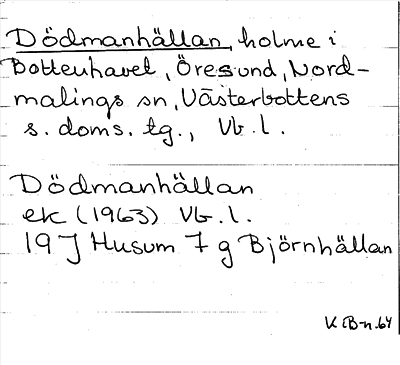 Dödmanhällan, holme i
Bottenhavet, Öresund, Nord-
malings sn, Västerbottens
s. doms. tg., Vb. l.
Dödmanhällan
ek (1963) Vb. l.
19 J Husum 7 g Björnhällan
K B-n. 64